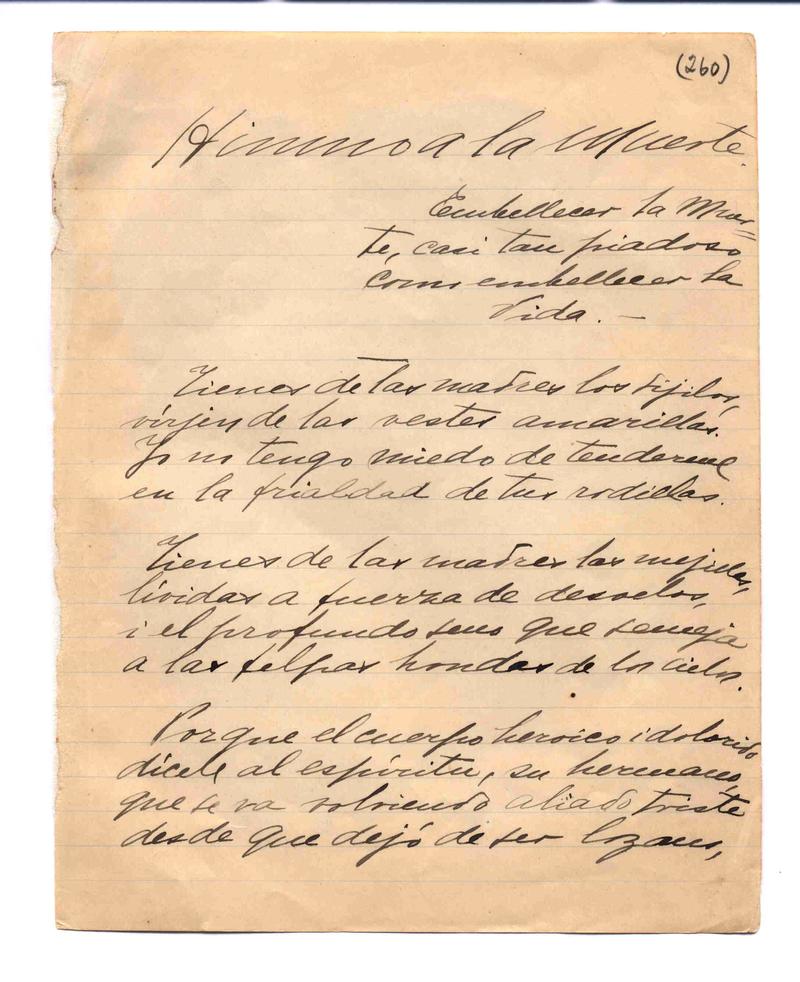 (260)
Himno a la Muerte.
Embellecer la Muer=
te, casi tan piadoso
como embellecer la
Vida. —
Tienes de las madres los sijilos,
vírjen de las vestes amarillas.
Yo no tengo miedo de tenderme
en la frialdad de tus rodillas.
Tienes de las madres las mejillas,
lívidas a fuerza de desvelos,
i el profundo seno que semeja
a las felpas hondas de los cielos.
Porque el cuerpo heroico i dolorido
dícele al espíritu, su hermano,
que se va volviendo aliado triste
desde que dejó de ser lozano,